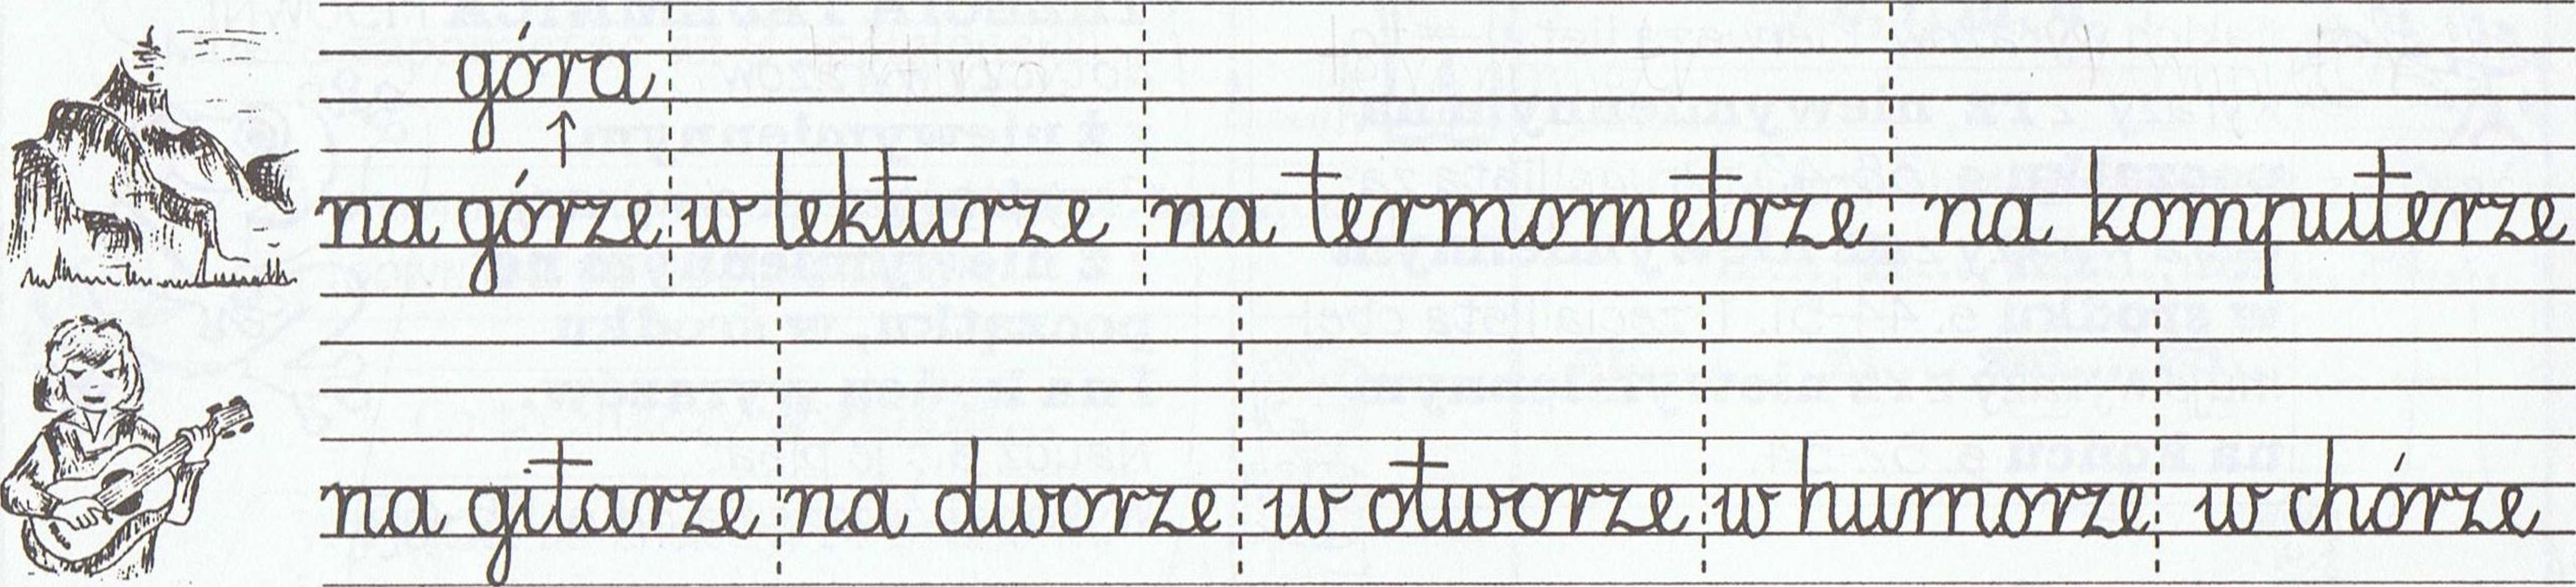 góra
↑
na górze w tekturze na termometrze na komputerze
na gitarze na dworze w otworze w humorze w chórze